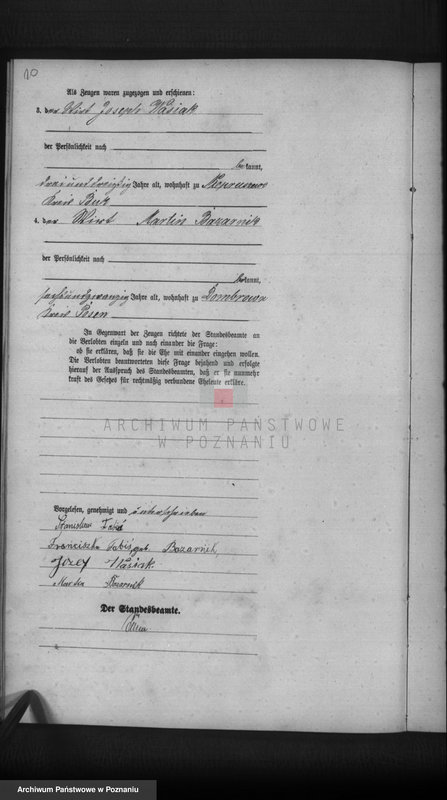 10
Als Zeugen waren zugezogen und erschienen:
3. der Wirt Joseph Wasiak
der Persönlichkeit nach
be kannt,
dreiunddreißig Jahre alt, wohnhaft zu
Kreis Buk
4. der Wirt Martin Bazarnik
der Persönlichkeit nach
be kannt,
sechsundzwanzig Jahre alt, wohnhaft zu Dombrowa
Kreis Posen
In Gegenwart der Zeugen richtete der Standesbeamte an
die Verlobten einzeln und nach einander die Frage:
ob sie erklären, daß sie die Ehe mit einander eingehen wollen.
Die Verlobten beantworteten diese Frage bejahend und erfolgte
hierauf der Ausspruch des Standesbeamten, daß er sie nunmehr
kraft des Gesetzes für rechtmäßig verbundene Eheleute erkläre.
ARCHIWUM PAŃSTWOWE
W POZNANIU
Vorgelesen, genehmigt und unterschrieben
Stanislaw
geb Bazarnik
Józef Wasiak
Bazarnik
Der Standesbeamte.
Archiwum Państwowe w Poznaniu